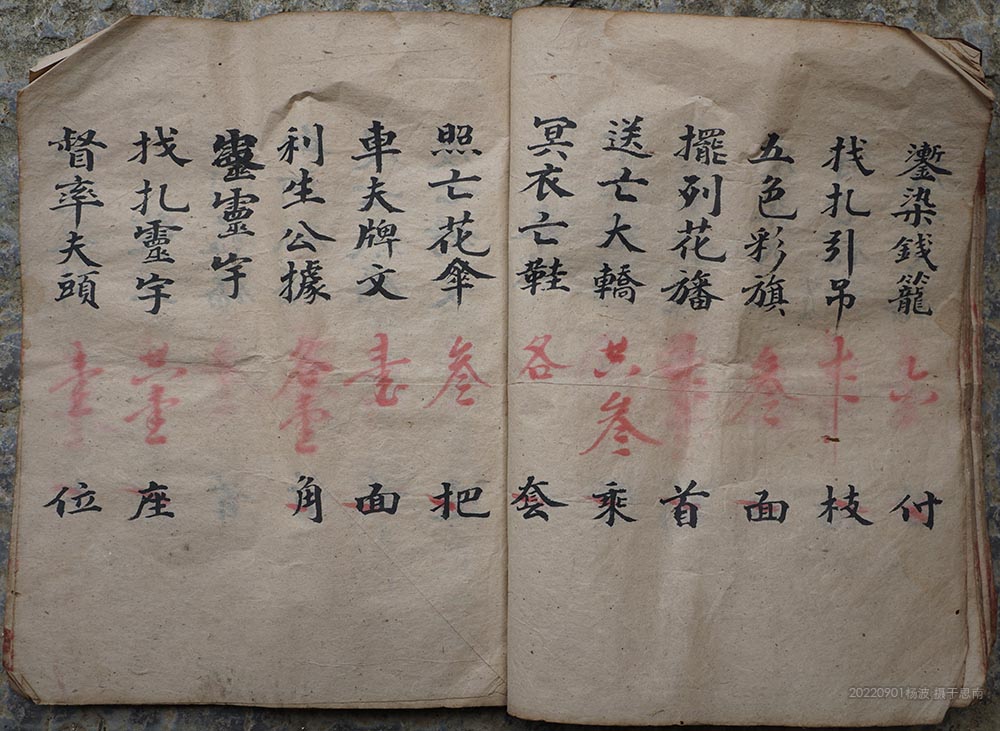 鏨染錢籠 六 付
找扎引吊 枝
五色彩旗 叁 面
擺列花旛 首
送亡大轎 共叁 乘
冥衣亡鞋 各 套
照亡花傘 叁 把
車夫牌文 壹 面
利生公據 各壹 角
靈靈宇
找扎靈宇 共壹 座
督率夫頭 壹 位
20220901杨波 摄于思南